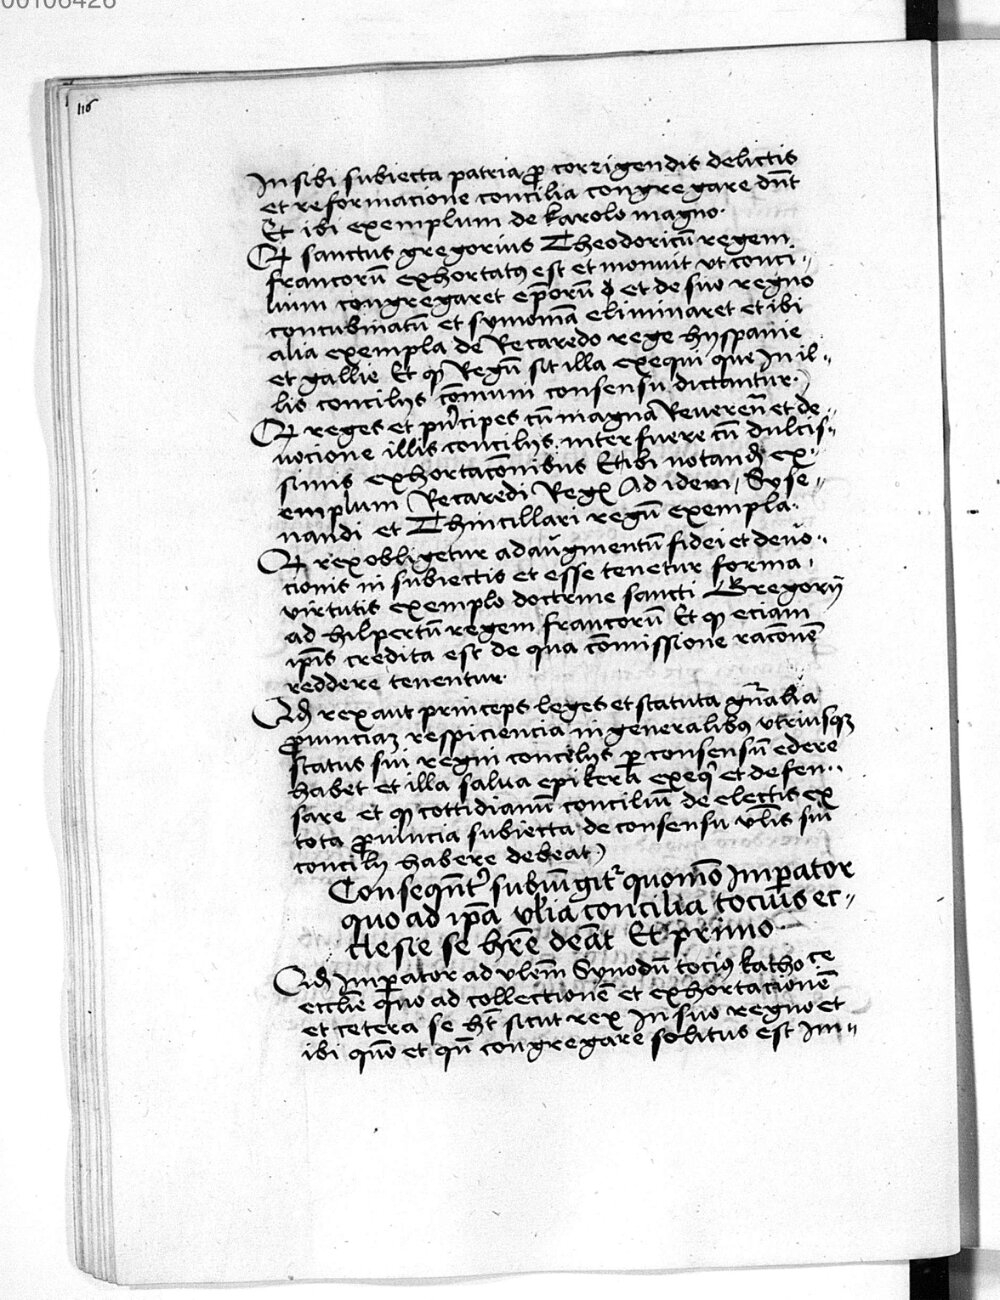 00106426
116
In sibi subiecta patria ꝓ corrigendis delictis
et reformacione concilia congregare dn̄t
Et ibi exemplum de karolo magno.
Qꝫ sanctus gregorius Theodoricū regem
francorū exhortatꝯ est et monuit vt conci-
lium congregaret ep̄orū et de suo regno
concubinatū et symoniā eliminaret et ibi
alia exempla de Recaredo rege hyspanie
et gallie Et qꝫ Regū sit illa exequi que In il-
lis concilijs cōmuni consensu dictantur.
Qꝫ reges et prīcipes cū magna Reueren̄ et de-
uocione illis concilijs interfuere cū dulcis-
simis exhortacōnibus Et ibi notandū ex-
emplum Recaredi Regꝭ Ad idem Syse-
nandi et Thincillari regū exempla.
Qꝫ rex obligetur ad augmentū fidei et deuo-
cionis in subiectis et esse tenetur forma
virtutis exemplo doctrine sancti Gregorij
ad hilpertū regem francorū Et qꝫ eciam
ip̄is credita est de qua cōmissione racōnē
reddere tenentur.
Qd̄ rex aut princeps leges et statuta gn̄alia
ꝓuinciaꝝ respiciencia in generalibꝯ vtriusqꝫ
status sui regni concilijs ꝑ consensū edere
habet et illa salua epikeia exeqͥ et defen-
sare et qꝫ cottidianū conciliū de electis ex
tota ꝓuincia subiecta de consensu vl̄is sui
concilij habere debeat
Conseqn̄tͬ subiūgitͬ quomō Imꝑator
quo ad ip̄a vl̄ia concilia tocius ec-
clesie se hr̄e deāt Et primo
Qd̄ Imꝑator ad vl̄em Synodū tociꝯ katholice
eccl̄ie quo ad collectionē et exhortacionē
et cetera se ht̄ sicut rex In suo regno et
ibi quō et qn̄ congregare solitus est Im-